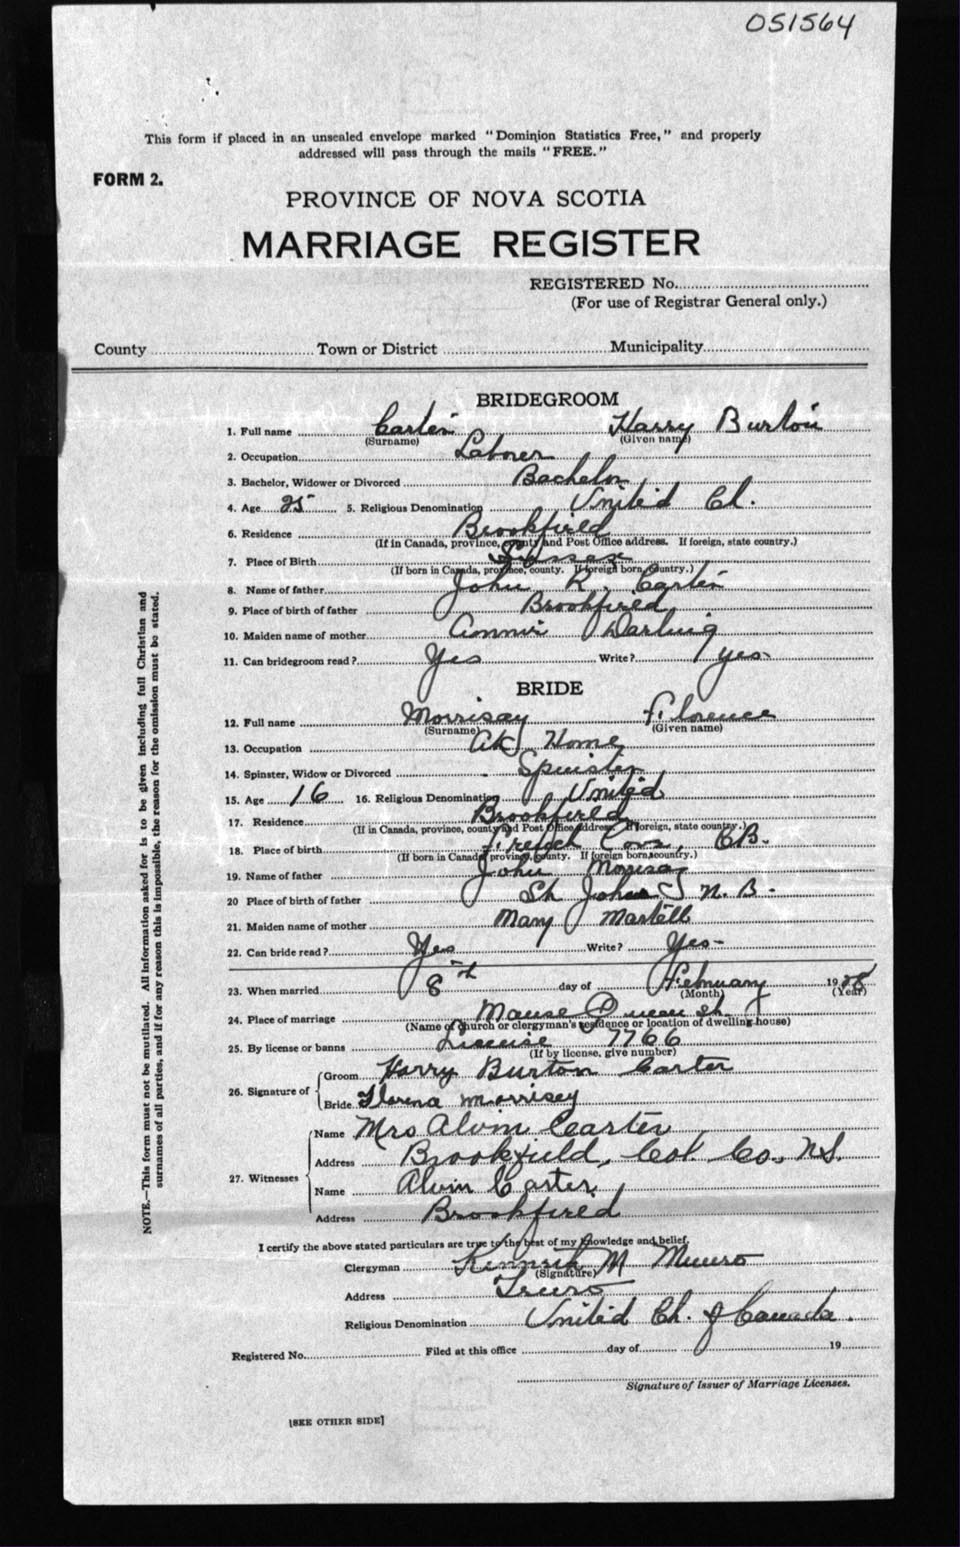 051564
This form if placed in an unsealed envelope marked "Dominion Statistics Free," and properly
addressed will pass through the mails "FREE."
FORM 2.
PROVINCE OF NOVA SCOTIA
MARRIAGE REGISTER
REGISTERED No.
(For use of Registrar General only.)
County Town or District Municipality
BRIDEGROOM
1. Full name Carter Harry Burton
(Surname) (Given name)
2. Occupation Laborer
3. Bachelor, Widower or Divorced Bachelor
4. Age 25 5. Religious Denomination United Ch.
6. Residence Brookfield
(If in Canada, province, county and Post Office address. If foreign, state country.)
7. Place of Birth Sussex
(If born in Canada, province, county. If foreign born, country.)
8. Name of father John R. Carter
9. Place of birth of father Brookfield
10. Maiden name of mother Annie Darling
11. Can bridegroom read? Yes Write? yes
BRIDE
12. Full name Morrisay Florence
(Surname) (Given name)
13. Occupation At Home
14. Spinster, Widow or Divorced Spinster
15. Age 16 16. Religious Denomination United
17. Residence Brookfield
(If in Canada, province, county and Post Office address. If foreign, state country.)
18. Place of birth French Cove, CB.
(If born in Canada, province, county. If foreign born, country.)
19. Name of father John Morrisay
20 Place of birth of father St Johns N. B.
21. Maiden name of mother Mary Martell
22. Can bride read? Yes Write? Yes-
23. When married 8th day of February 1928
(Month) (Year)
24. Place of marriage Manse Queen St.
(Name of church or clergyman's residence or location of dwelling house)
25. By license or banns License 7766
(If by license, give number)
26. Signature of Groom Harry Burton Carter
Bride Florena Morrisey
27. Witnesses Name Mrs Alvin Carter
Address Brookfield, Col. Co., N.S.
Name Alvin Carter
Address Brookfield
I certify the above stated particulars are true to the best of my knowledge and belief.
Clergyman Kenneth M Munro
(Signature)
Address Truro
Religious Denomination United Ch. of Canada.
Registered No. Filed at this office day of 19
Signature of Issuer of Marriage Licenses.
[SEE OTHER SIDE]
NOTE.—This form must not be mutilated. All information asked for is to be given including full Christian and
surnames of all parties, and if for any reason this is impossible, the reason for the omission must be stated.